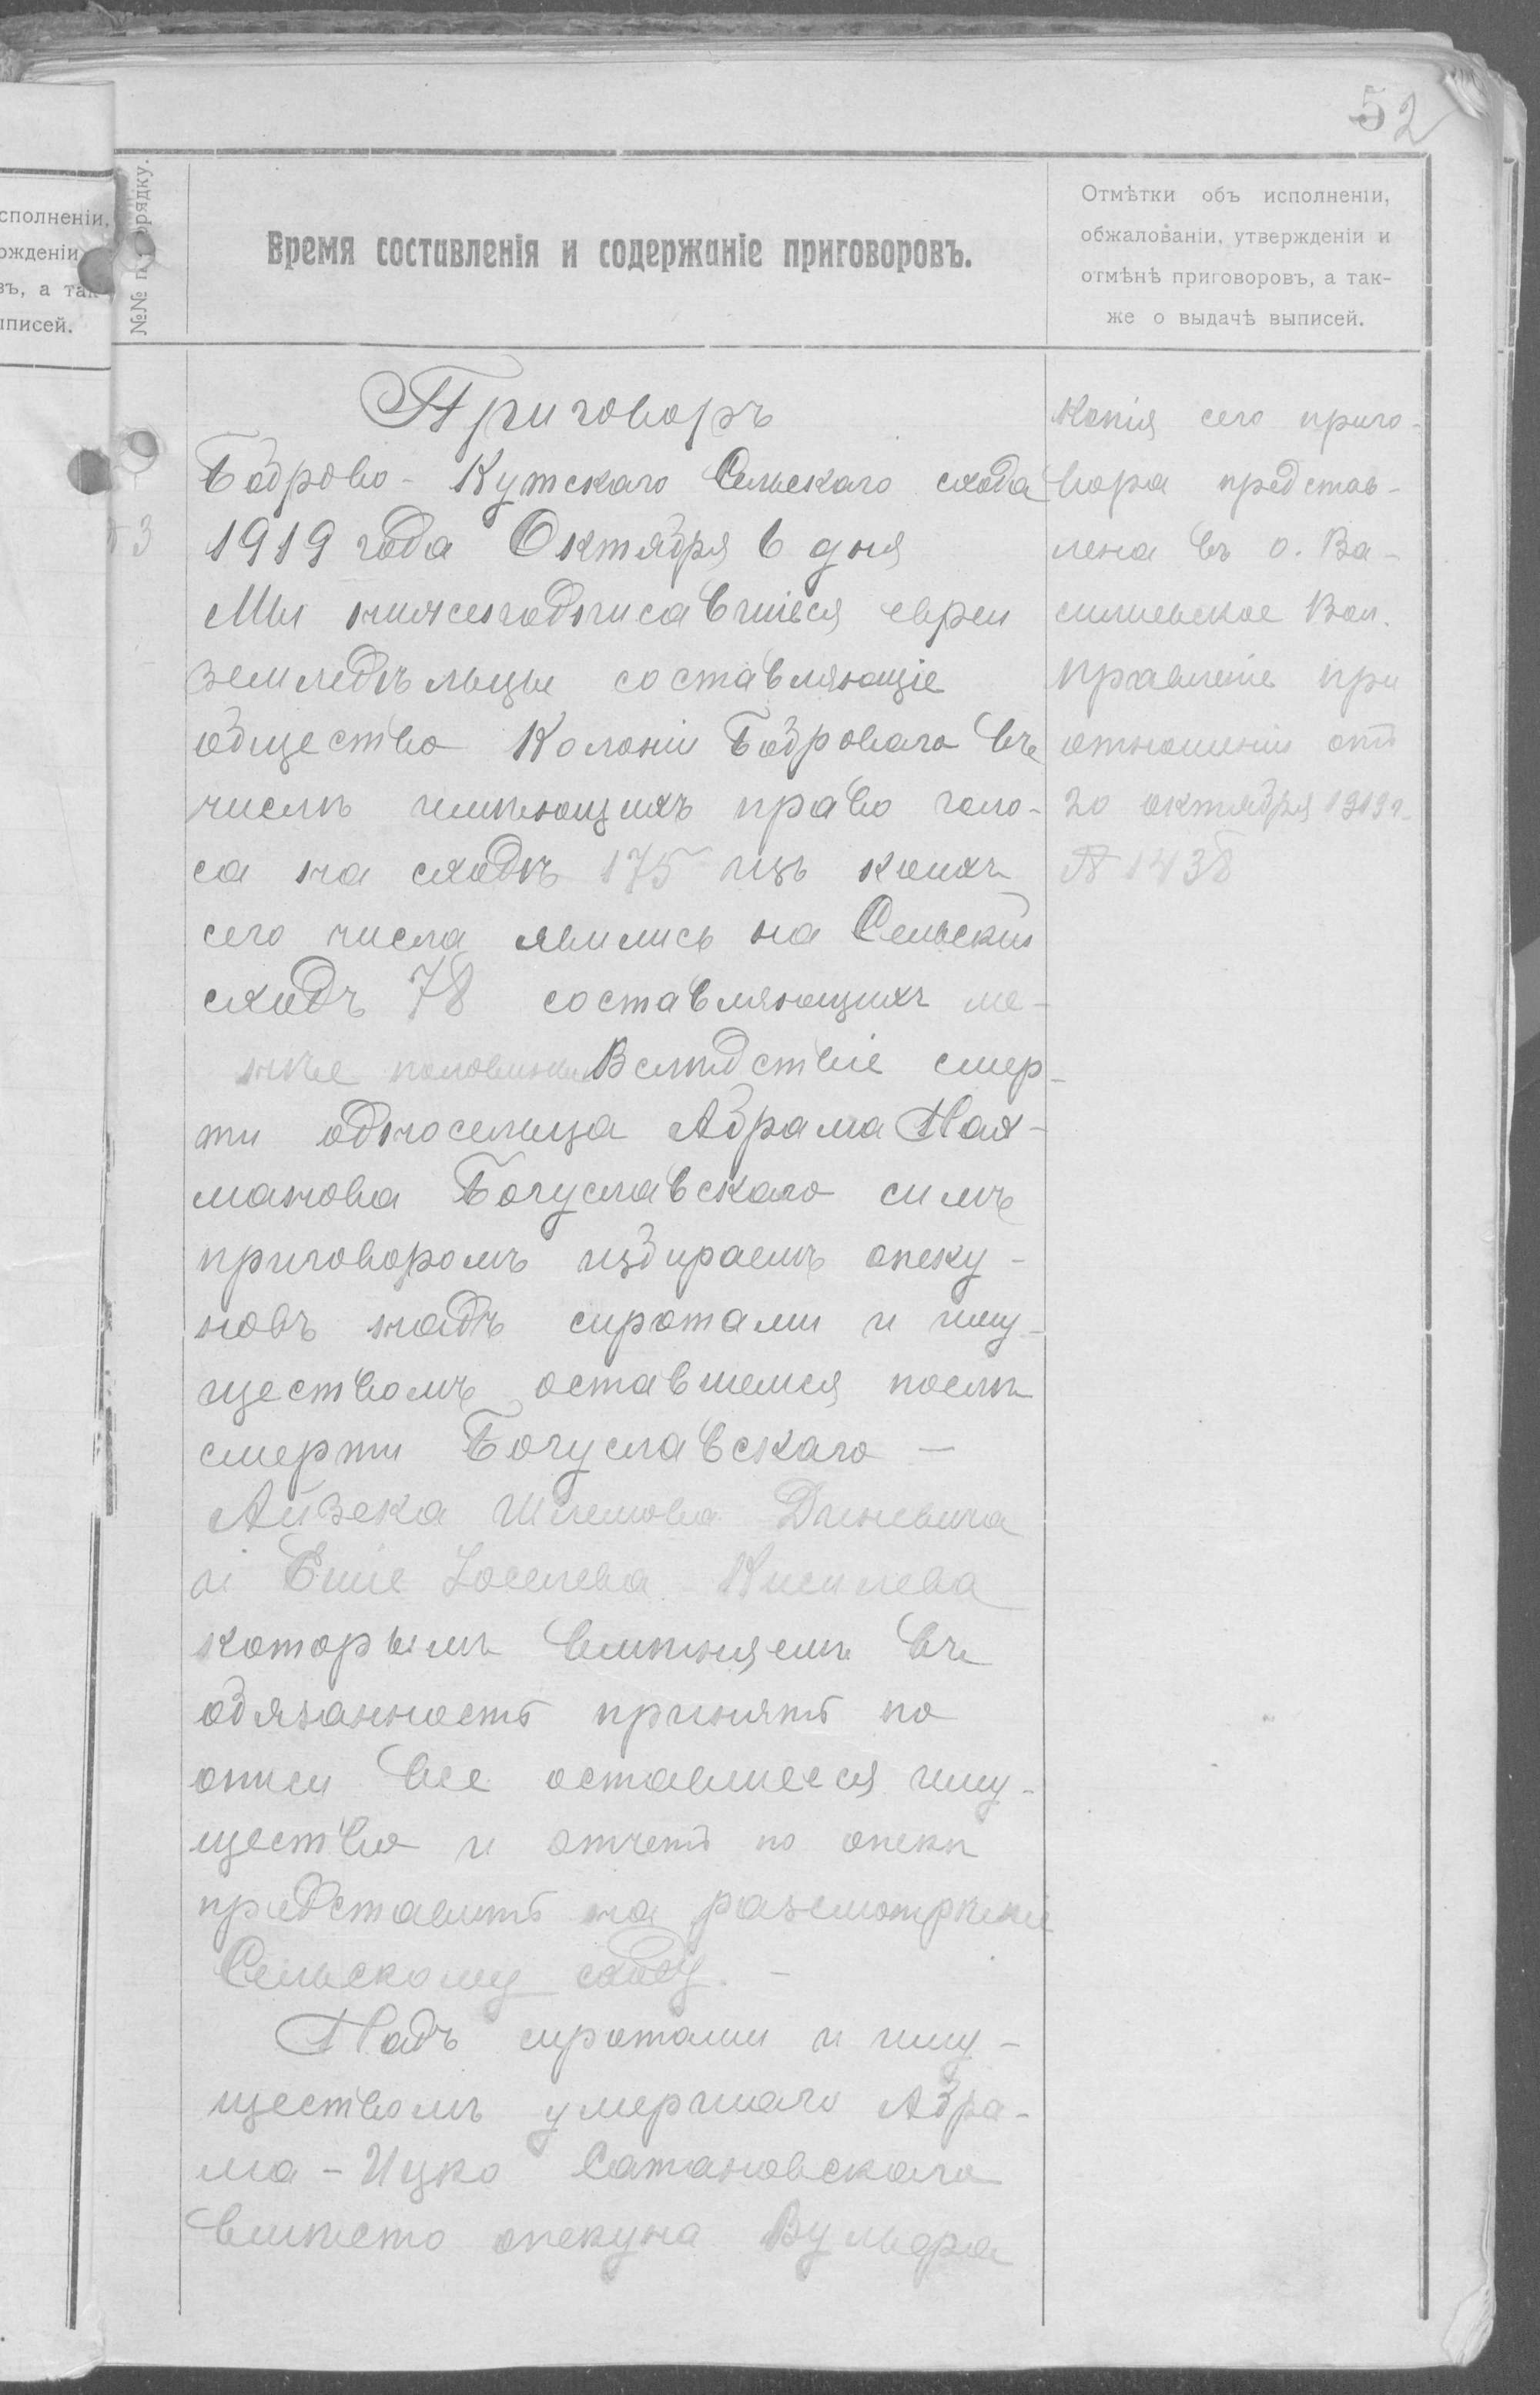 52
сполненіи,
ожденіи
въ, а так
ыписей.
№№ по порядку.
Время составленія и содержаніе приговоровъ.
Отмѣтки объ исполненіи,
обжалованіи, утвержденіи и
отмѣнѣ приговоровъ, а так-
же о выдачѣ выписей.
3
Приговоръ
Боброво-Кутскаго Сельскаго схода
1919 года Октября 6 дня
Мы нижеподписавшіеся евреи
земледѣльцы составляющіе
общество Колоніи Боброваго въ
числѣ имѣющихъ право голо-
са на сходѣ 175 изъ коихъ
сего числа явились на Сельскій
сходъ 78 составляющихъ ме-
нѣе половины Вслѣдствіе смер-
ти односельца Абрама Нах-
манова Богуславскаго симъ
приговоромъ избираемъ опеку-
новъ надъ сиротами и иму-
ществомъ оставшемся послѣ
смерти Богуславскаго —
Айзека Шлемова Диневича
и Еліе Іоселева Киселева
которымъ вмѣняемъ въ
обязанность принять по
описи все оставшееся иму-
щество и отчетъ по опекѣ
представить на разсмотрѣніе
Сельскому сходу. —
Надъ сиротами и иму-
ществомъ умершаго Абра-
ма-Ицко Сатановскаго
вмѣсто опекуна Вульфа
Копія сего приго-
вора представ-
лена въ о. Ва-
силевское Вол.
Правленіе при
отношеніи отъ
20 октября 1919 г.
№ 1438